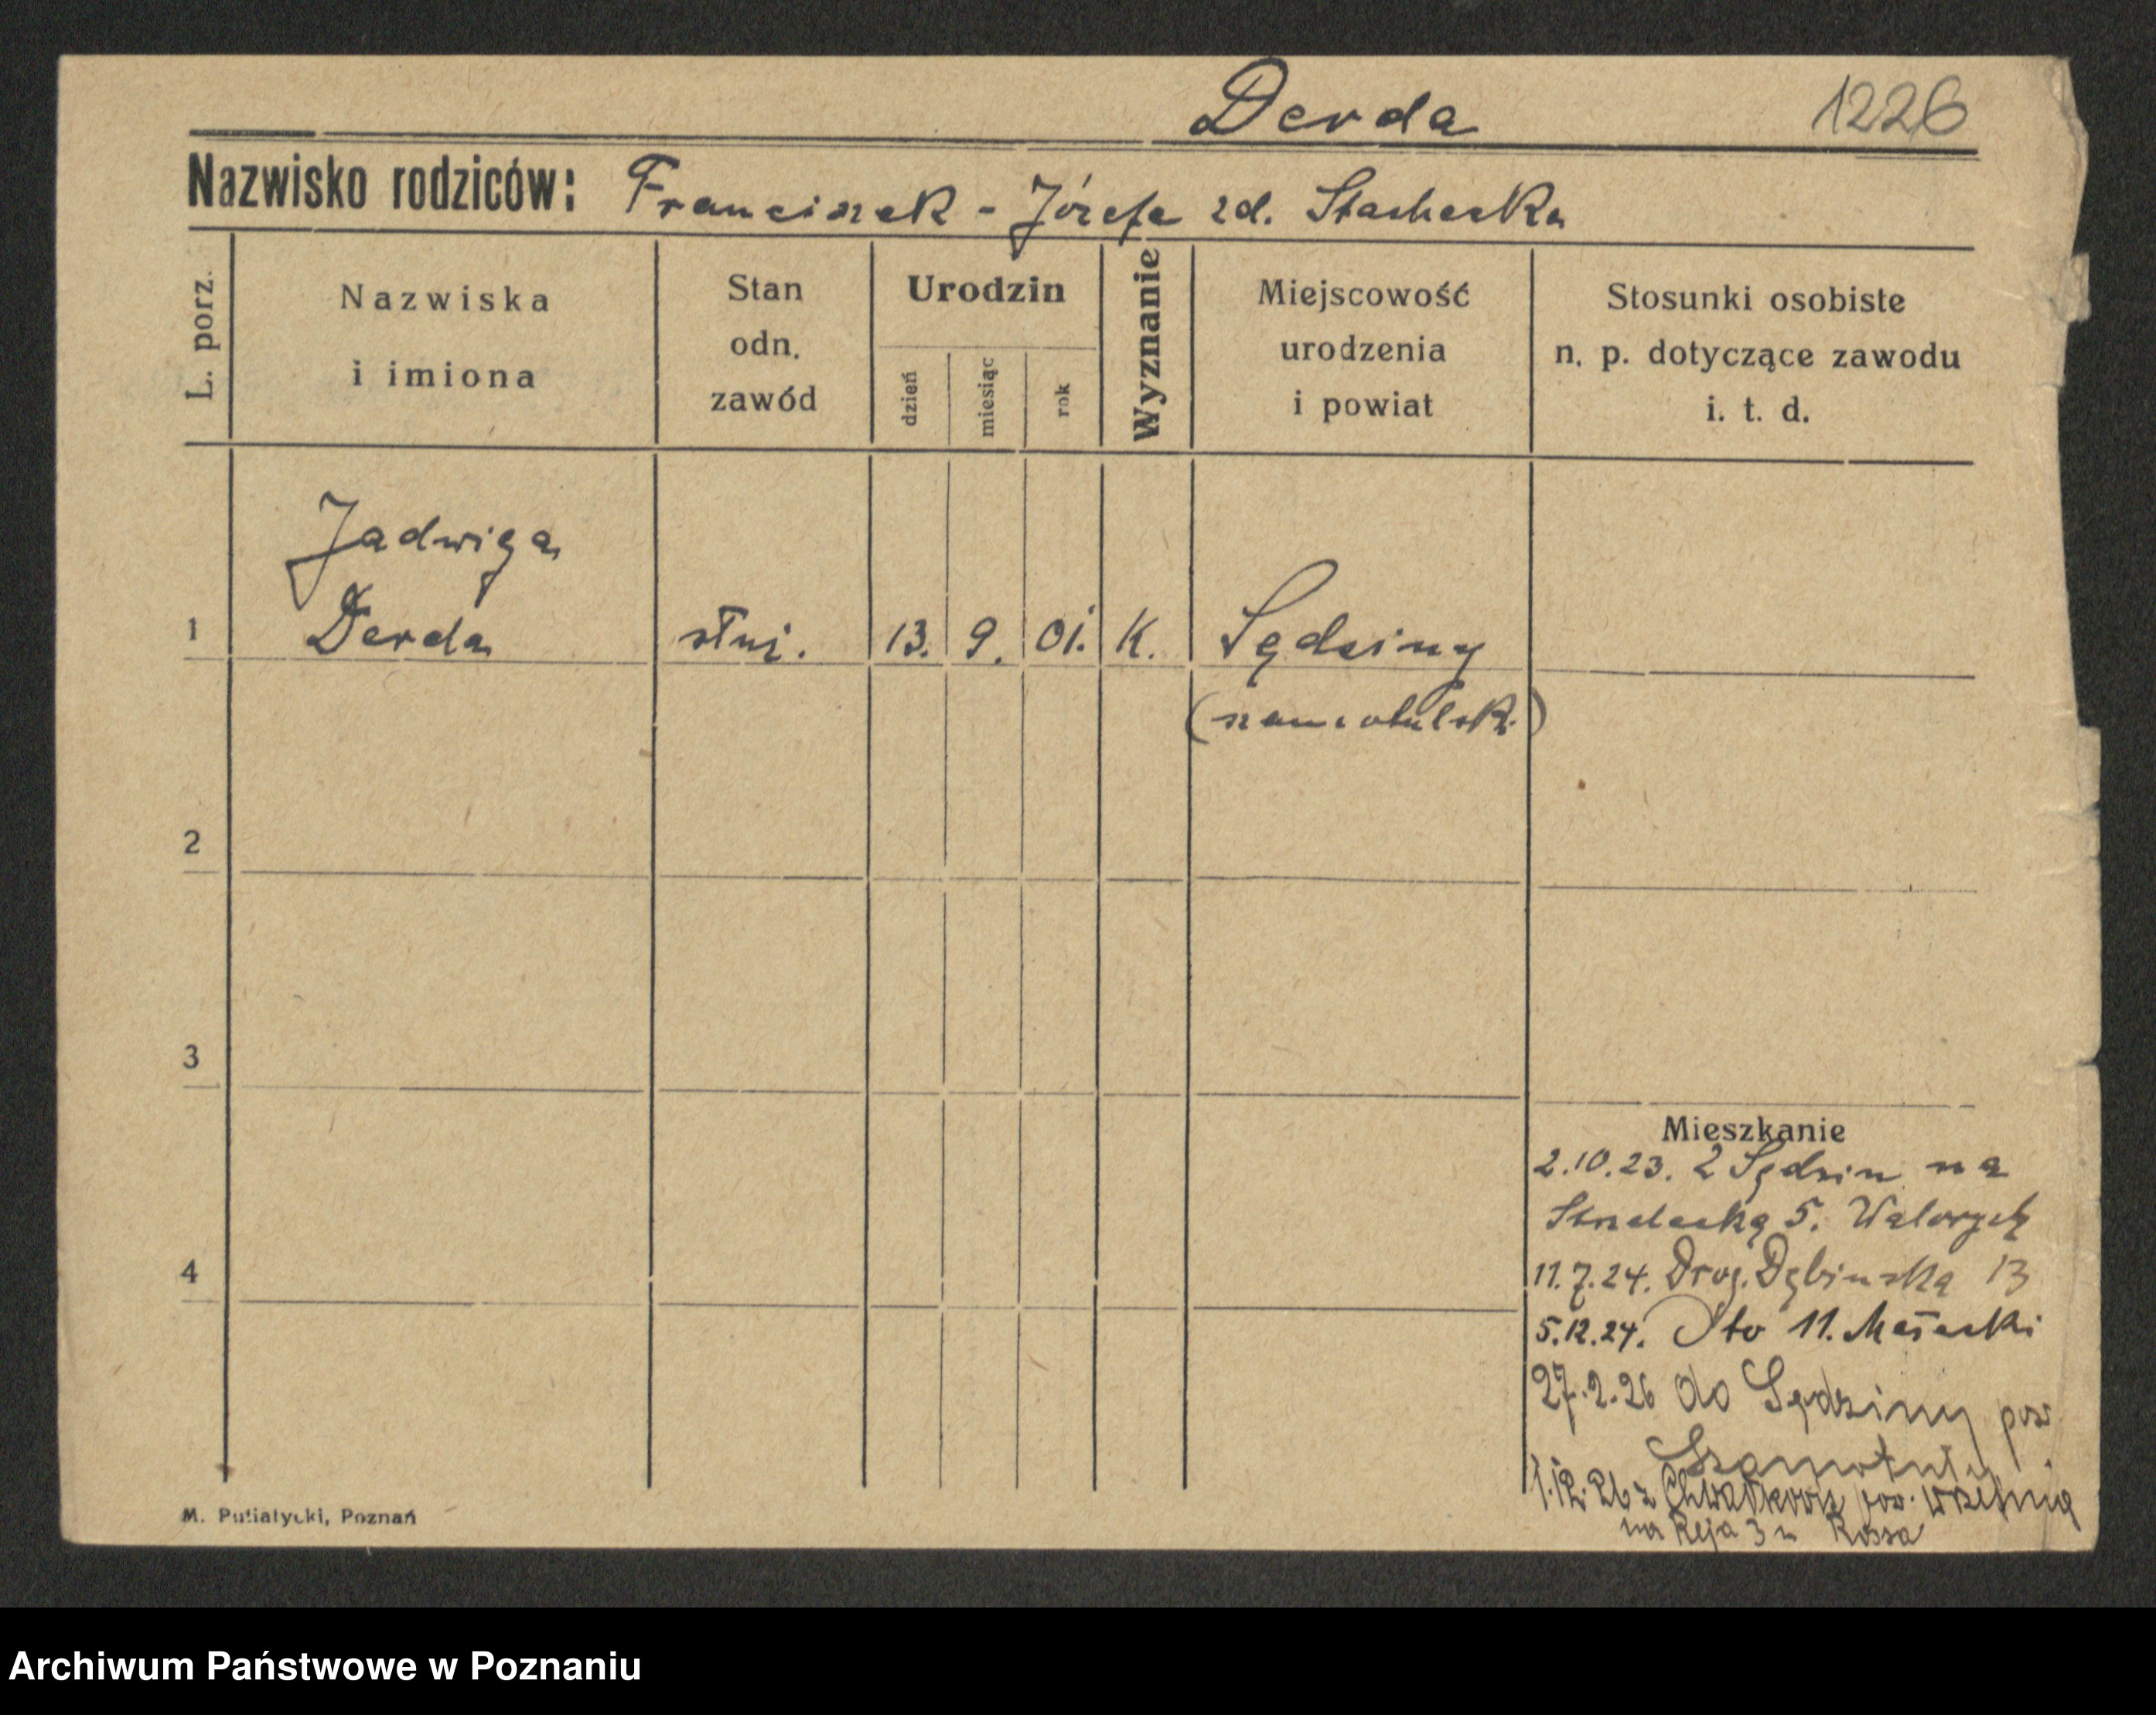 Derda 1226
Nazwisko rodziców: Franciszek - Józefa zd. Stachecka
L. porz.
Nazwiska
i imiona
Stan
odn.
zawód
Urodzin
dzień
miesiąc
rok
Wyznanie
Miejscowość
urodzenia
i powiat
Stosunki osobiste
n. p. dotyczące zawodu
i. t. d.
Jadwiga
1 Derda służ. 13. 9. 01. K. Sędziny
(szamotulsk.)
2
3
Mieszkanie
2.10.23. z Sędzin na
Strzelecką 5.
4
11.7.24. Drog. Dębinska 13
5.12.24. 11. Małecki
27.2.26 do Sędziny pow.
Szamotuły
1.12.26 z pow. Września
na Reja 3 u Rossa
M. Putiatycki, Poznań
Archiwum Państwowe w Poznaniu